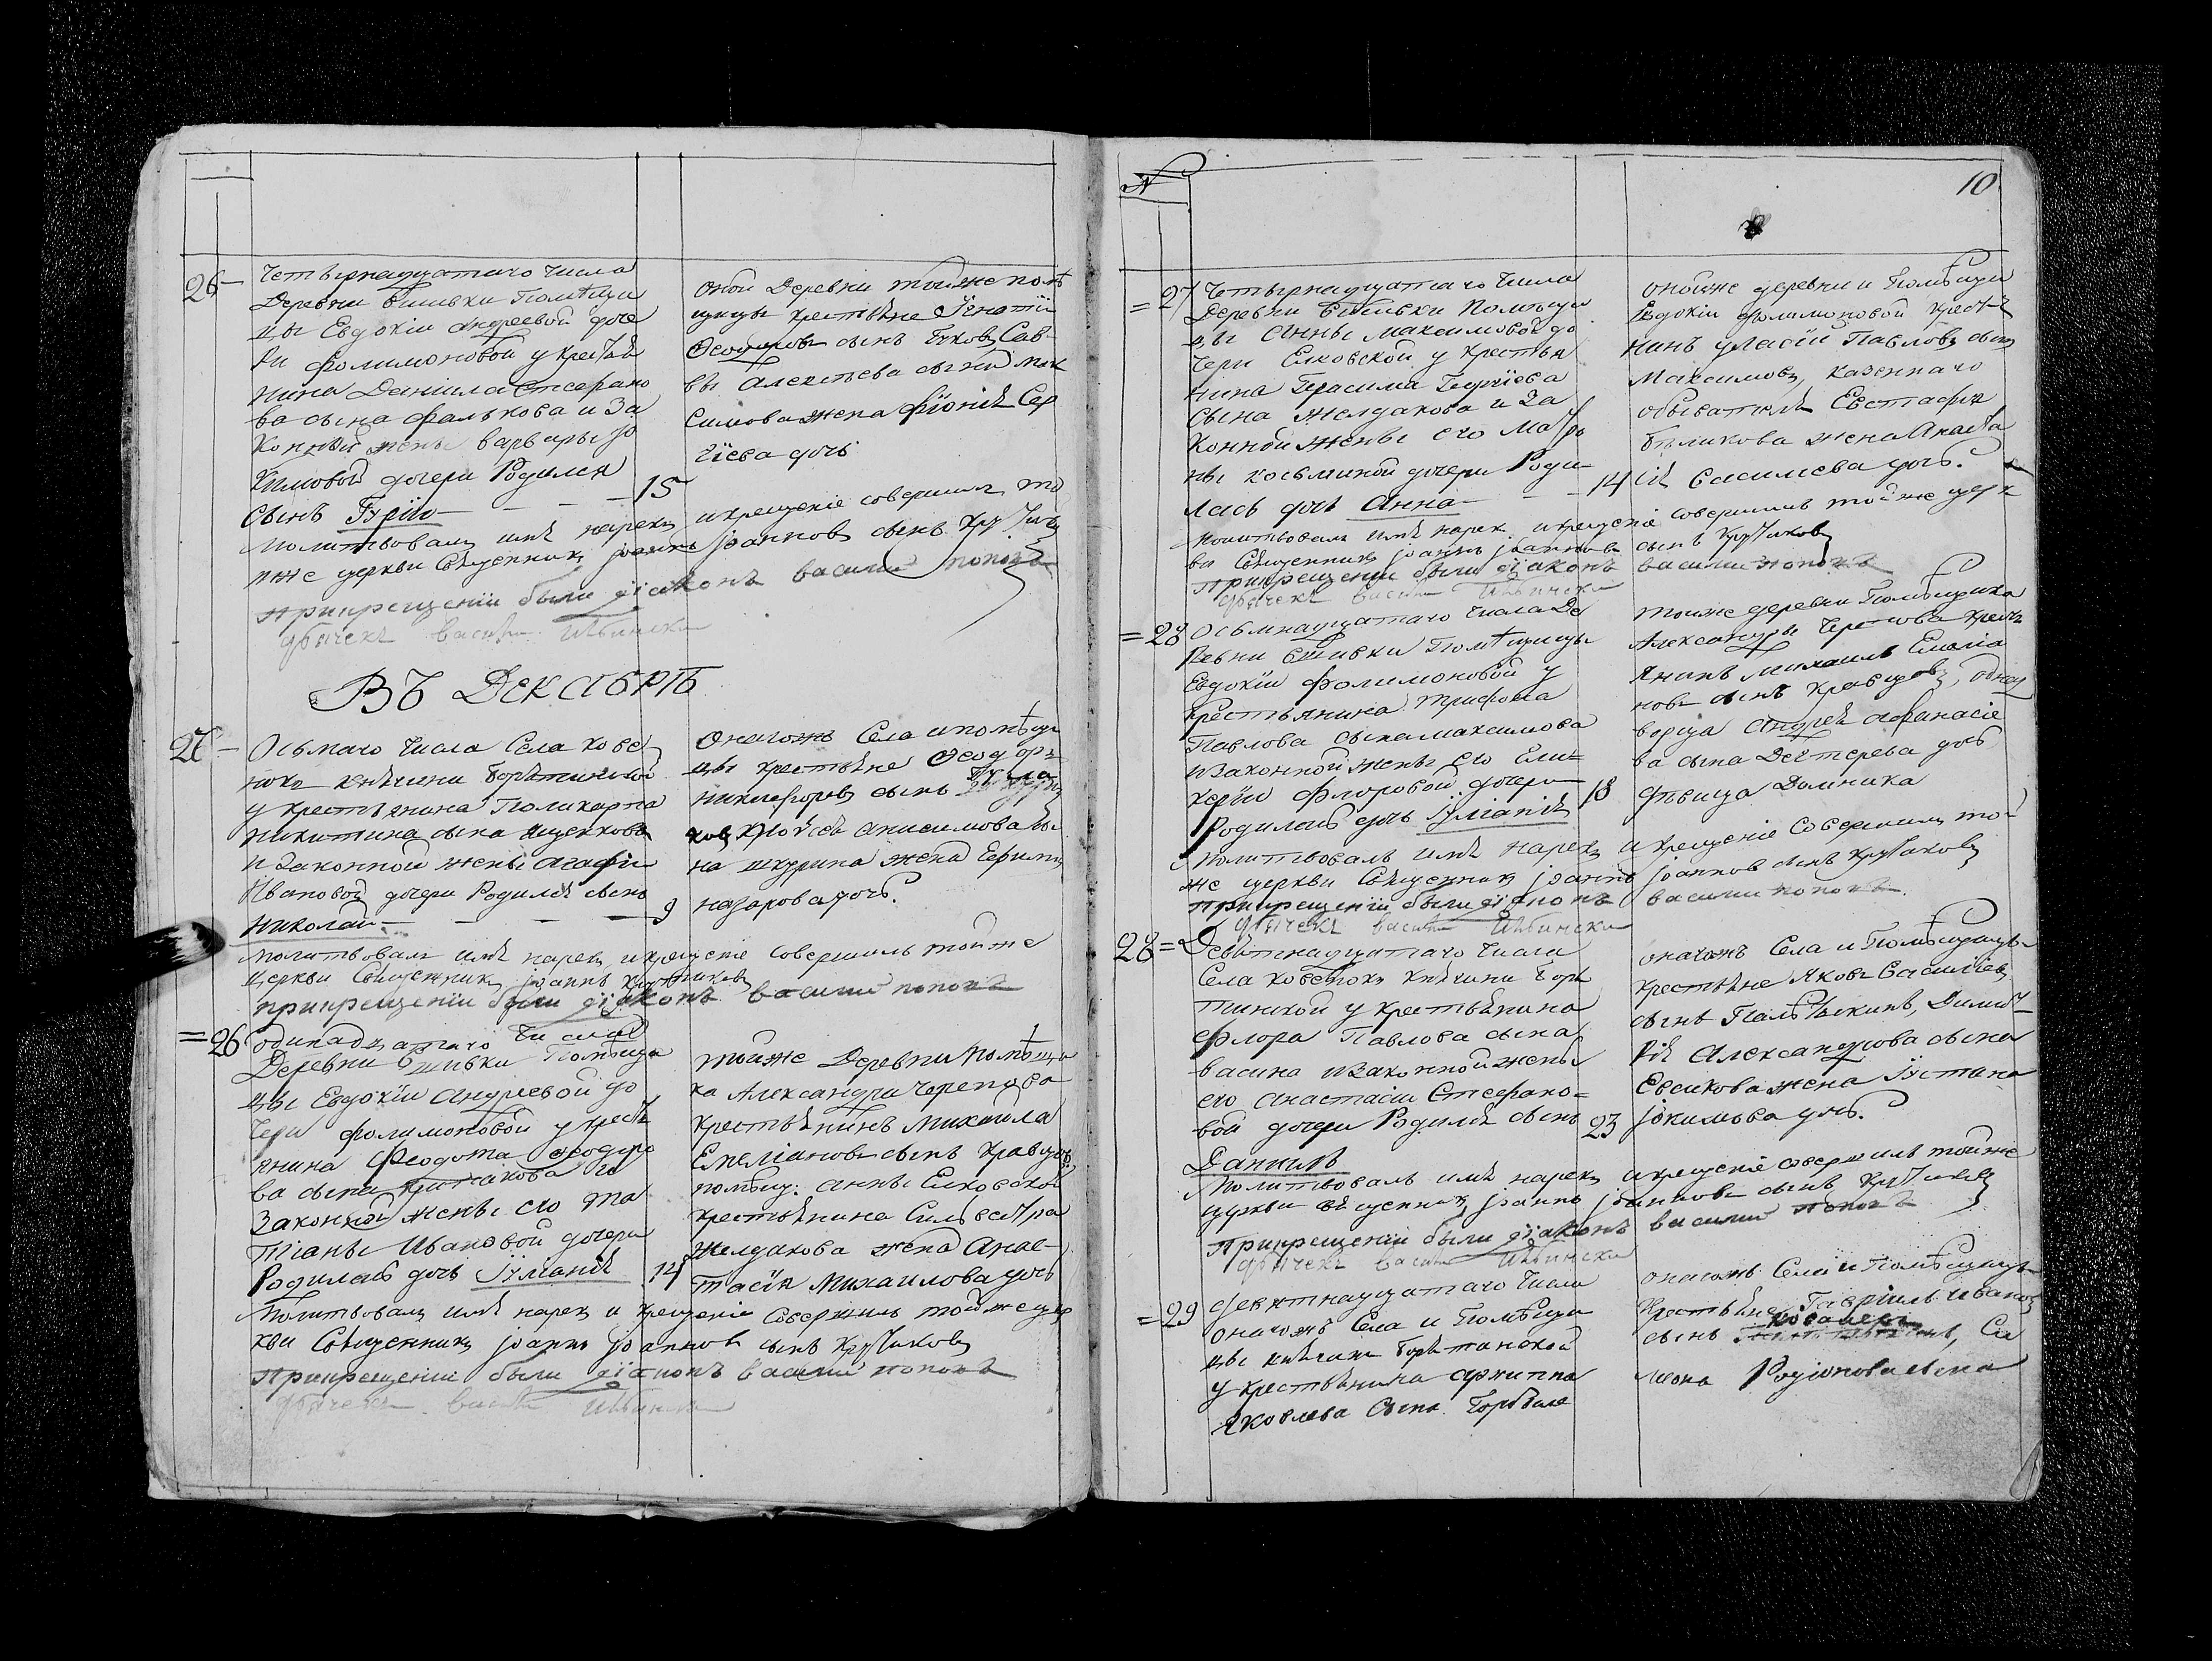 26 – Четырнадцатаго числа
Деревни Помѣщи
цы Евдокіи Андреевой доче
ри Филимоновой у крестья
нина Даніила Стефано
ва сына Фалькова и за
конной жены Варвары
Кимовой дочери Родился
сынъ Гурій 15
оной Деревни тойже помѣ
щицы крестьяне Игнатій
Феодоровъ сынъ Сав
вы Алексѣева сына Мак
симова жена Фіонія Сер
гіева дочь
молитвовалъ имя нарекъ и крещеніе совершилъ то
иже церкви Священникъ Іоаннъ Іоанновъ сынъ Крутиковъ
При крещеніи были діаконъ василий поповъ
дьячекъ василий Ильинский
ВЪ ДЕКАБРѢ
27 – Осьмаго числа Села
княгини
у крестьянина Поликарпа
Никитина сына
и законной жены Агафіи
Ивановой дочери Родился сынъ
Николай 9
Онагожъ Села и помѣщи
цы крестьяне Феодоръ
Никифоровъ сынъ
Анисимова сы
на шкурина жена Ефимія
назарова дочь.
молитвовалъ имя нарекъ и крещеніе совершилъ тойже
церкви Священникъ Іоаннъ Крутиковъ
при крещеніи были діаконъ василий поповъ
=26 одинадцатаго числа
Деревни Помѣщи
цы Евдокіи Андреевой до
чери Филимоновой у крестья
янина Феодота Феодоро
ва сына
законной жены его Та
тіаны Ивановой дочери
Родилась дочь Іуліанія 14
тойже Деревни помѣщи
ка Александра Черепова
крестьянинъ Михаила
Емеліановъ сынъ Кравцовъ,
помѣщ: Анны Елковской
крестьянина Сильвестра
Желдакова жена Анас-
тасія Михаилова дочь
молитвовалъ имя нарекъ и крещеніе совершилъ тойже цер
кви Священникъ Іоаннъ Іоанновъ сынъ Крутиковъ
при крещеніи были діаконъ василий поповъ
дьячекъ василий Ильинский
N
10
=27 Четырнадцатаго числа
Деревни Помѣщи
цы Анны Максимовой до
чери Елковской у крестья
нина Герасима Георгіева
сына Желдакова и за
конной жены его Матро
ны Косьминой дочери Роди
лась дочь Анна 14
онойже деревни и Помѣщицы
Евдокіи Филимоновой крестья
нинъ Власій Павловъ сынъ
Максимовъ, казеннаго
обывателя Евстафія
Бѣликова жена Анаста
сія Василіева дочь.
молитвовалъ имя нарекъ и крещеніе совершилъ тойже церк
ви Священникъ Іоаннъ Іоанновъ сынъ Крутиковъ
При крещеніи были діаконъ василий поповъ
дьячекъ василий Ильинский
=28 Осьмнадцатаго числа Де
ревни Помѣщицы
Евдокіи Филимоновой у
крестьянина Трифона
Павлова сына Максимова
и законной жены его Гли
керіи Флоровой дочери
Родилась дочь Іуліанія 18
тойже деревни Помѣщика
Александра Черепова кресть
янинъ Михаилъ Емеліа
новъ сынъ Кравцовъ, однод
ворца Андрея Афанасіе
ва сына Дехтерева дочь
дѣвица Домника
молитвовалъ имя нарекъ и крещеніе совершилъ той
же церкви Священникъ Іоаннъ Іоанновъ сынъ Крутиковъ
При крещеніи были діаконъ василий поповъ
дьячекъ василий Ильинский
28= Девятнадцатаго числа
Села княгини
у крестьянина
Флора Павлова сына
и законной жены
его Анастасіи Стефано=
вой дочери Родился сынъ 23
Даніилъ
онагожъ Села и Помѣщицы
крестьяне Яковъ Василіевъ
сынъ Димит
рія Александрова сына
Евсикова жена Іустина
Іокимова дочь.
Молитвовалъ имя нарекъ и крещеніе совершилъ тойже
церкви священникъ Іоаннъ Іоанновъ сынъ Крутиковъ
При крещеніи были діаконъ василий поповъ
дьячекъ василий Ильинский
=29 девятнадцатаго числа
онагожъ Села и Помѣщи
цы княгини
у крестьянина Архиппа
Яковлева сына
онагожъ Села и Помѣщицы
крестьяне Гавріилъ Ивановъ
сынъ Си
меона Родіонова сына